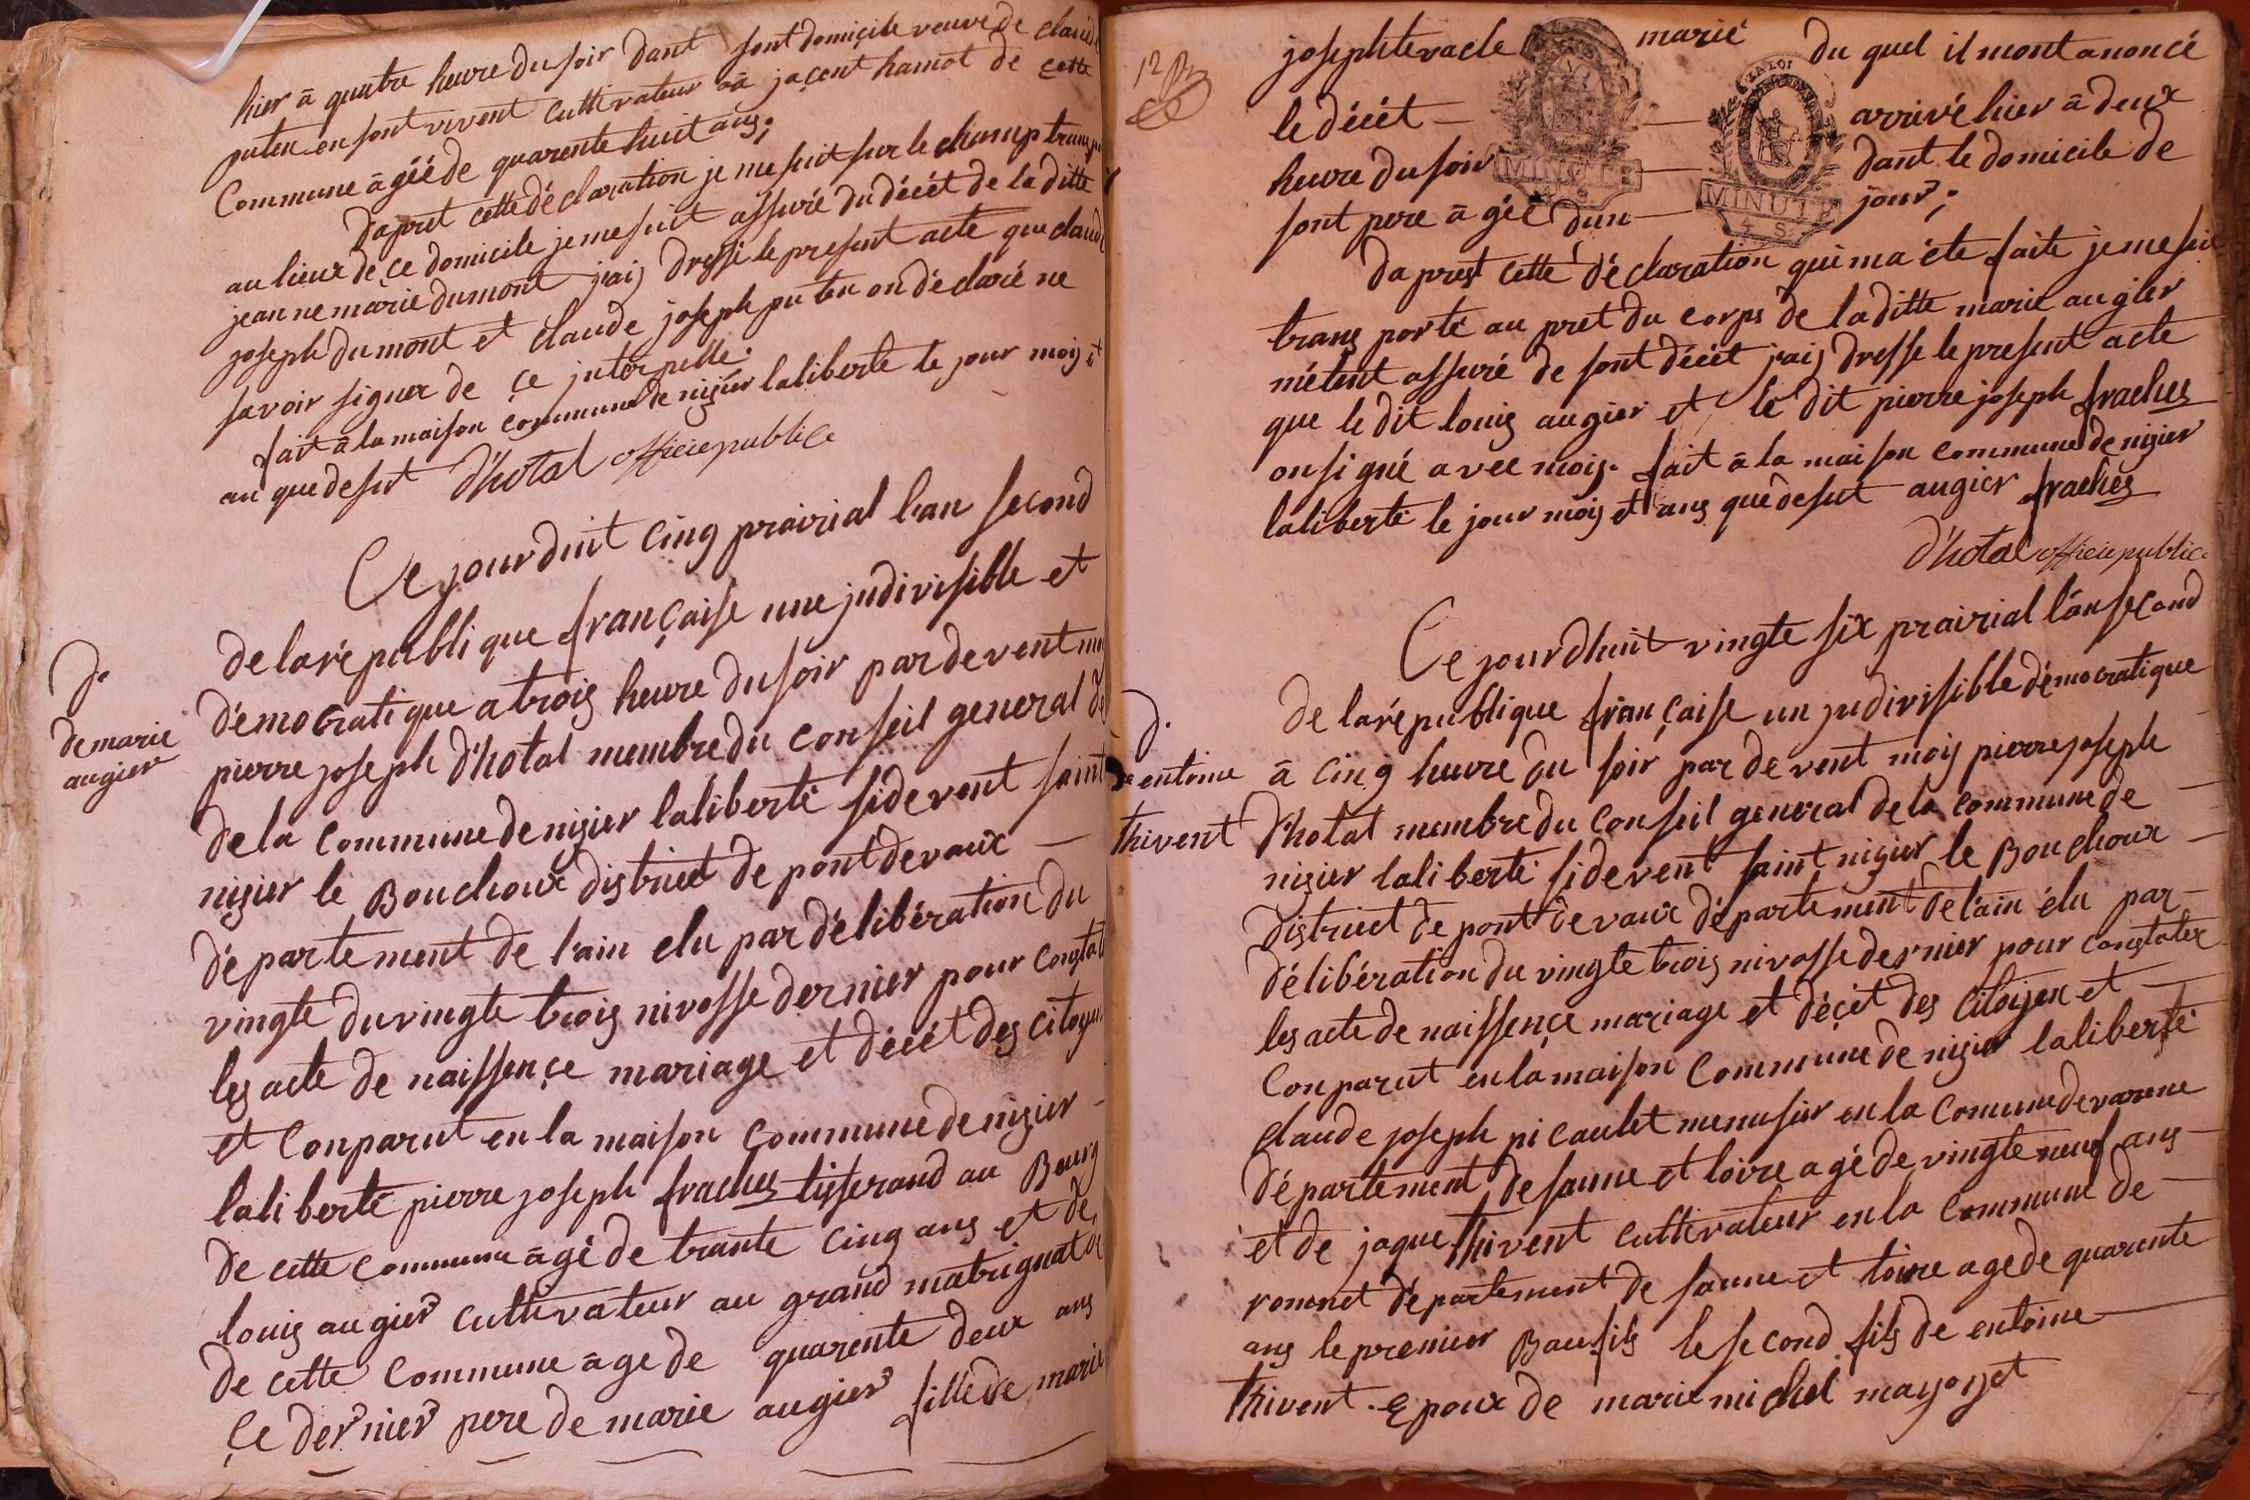 hier à quatre heure du soir dant sont domicile veuve de claude
puten en sont vivent cultivateur à jacent hamot de cette
Commune àgéé de quarente huit ans;
Dapret cette déclaration je me suit sur le champ transpo
au lieux de ce domicile je me suit assuré du décét de la ditte
jeanne marie dumont jaij dressé le present acte que claude
joseph dumont et claude joseph puten on déclaré ne
savoir signer de ce interpellé.
fait à la maison commune de nizier laliberté le jour mois et
an que desut d'hotal officiepublice
Ce jourduit cinq prairial l'an second
de la république française une jndivisible et
d.
démocratique a trois heure du soir par devent moi
de marie
augier
pierre joseph d'hotal membre du conseil general de
de la commune de nizier laliberté sidevent saint
nizier le Bouchoux district de pont devaux —
département de l'ain elu par délibération du
vingte du vingte trois nivosse dernier pour constat
les acte de naissençe mariage et décét des citoyen
et Conparut en la maison Commune de nizier
laliberté pierre joseph fraches tisserand au Bourg
de cette commune àgé de trante cinq ans et de
louis augier cultivateur au grand matrignat
de cette Commune àge de quarente deux ans
çe dernier pere de marie augier fille de marie
12
josephte vacle marié du quel il mont anoncé
le décét — — arrivé hier à deux
MINUTE
MINUTE
heure du soir — dant le domicile de
sont pere àgéé dun — jour;
Daprest cette déclaration qui ma éte faite je me suit
trans porté au pret du corps de la ditte marie augier
métent assuré de sont décét jaij dresse le present acte
que le dit louis augier et le dit pierre joseph fraches
on signé avec mois. fait à la maison commune de nizier
laliberté le jour mois et ans que desut augier fraches
d'hotal officiepublice
Ce jourdhuit vingte six prairial l'an second
de la république française un jndivisible démocratique
d.
de entoine
thivent
à cinq heure du soir par devent mois pierre joseph
d'hotal membre du conseil general de la commune de
nizier laliberté sidevent saint nizier le Bouchoux
district de pont de vaux département de l'ain élu par
délibération du vingte trois nivosse dernier pour constater
les acte de naissençe mariage et déçét des Citoijen et —
Conparut en la maison Commune de nizier laliberté
claude joseph picaulet menusier en la Comune de varene
département de saune et loire agé de vingte neuf ans
et de jaque thivent cultivateur en la commune de
romenet département de saune et loire age de quarente
ans le premier Baufils le second fils de entoine
thivent. Epoux de marie michel mayoyet